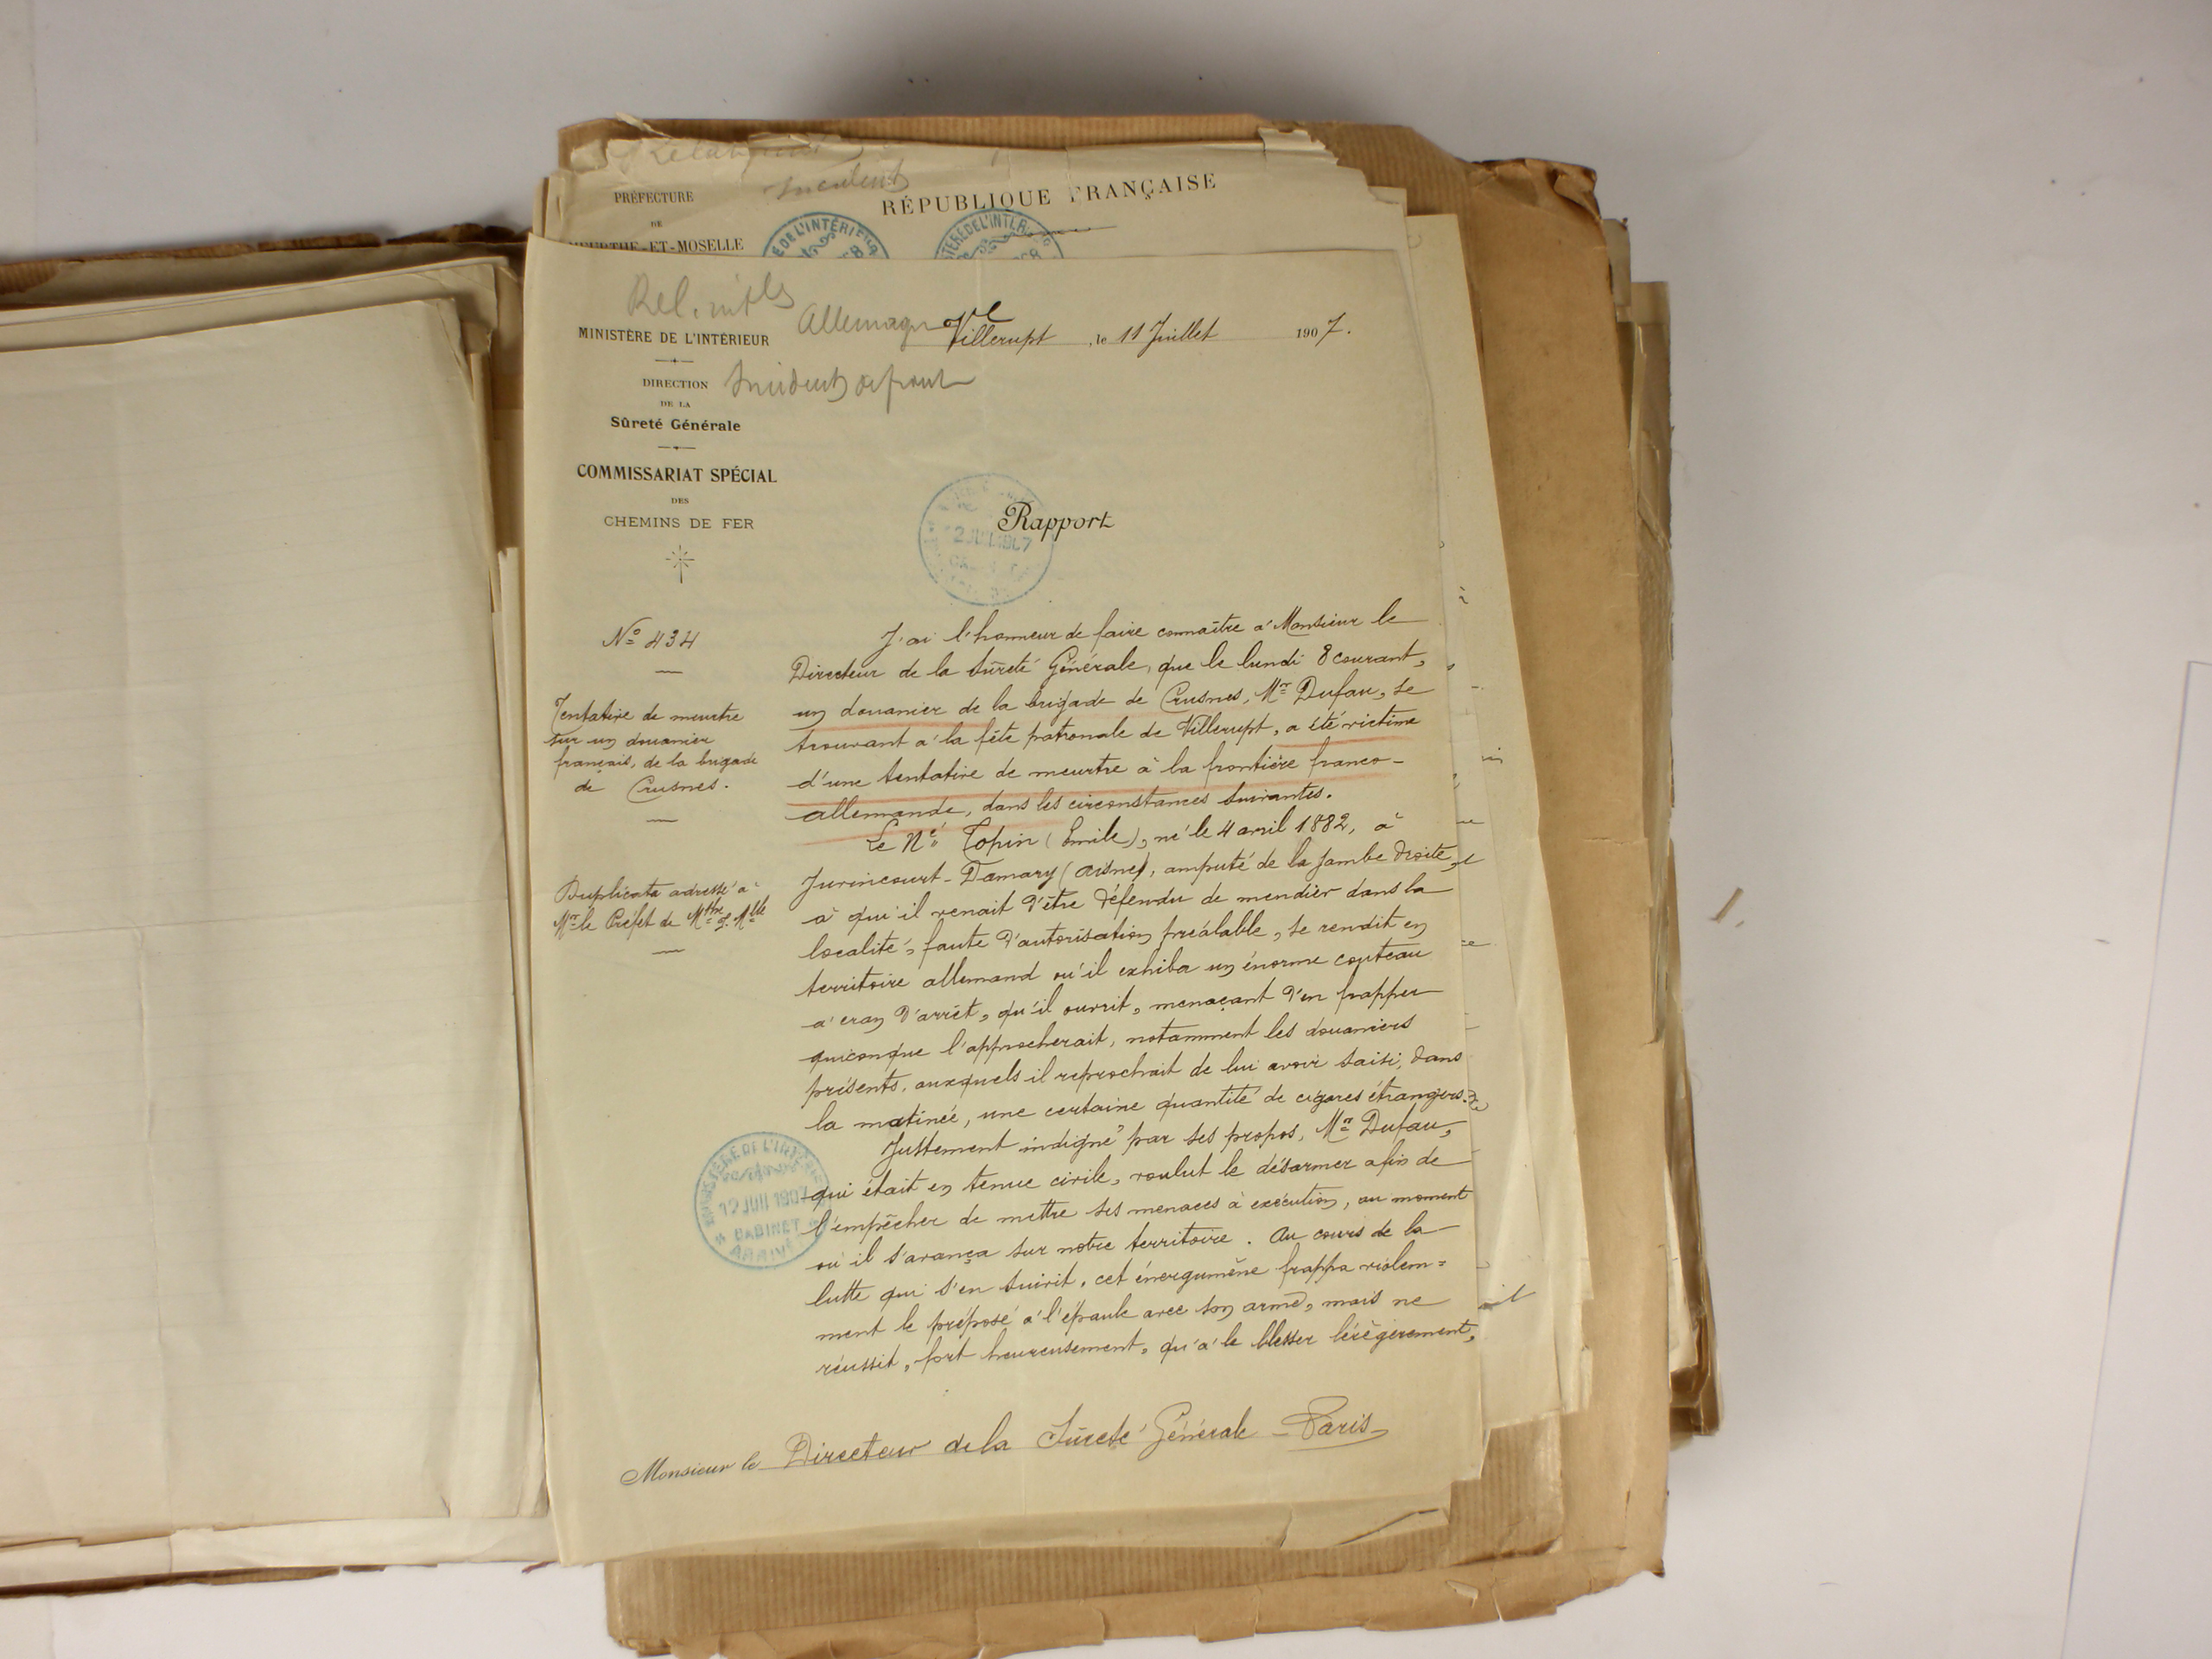 PRÉFECTURE
DE
MEURTHE-ET-MOSELLE
RÉPUBLIQUE FRANÇAISE
Allemagne
MINISTÈRE DE L'INTÉRIEUR
Villerupt, le 11 Juillet 1907.
DIRECTION
DE LA
Sûreté Générale
COMMISSARIAT SPÉCIAL
DES
CHEMINS DE FER
Rapport
N° 434
Tentative de meurtre
sur un douanier
français, de la brigade
de Crusnes.
Duplicata adressé à
Mr le Préfet de Mthe & Mlle
J'ai l'honneur de faire connaître à Monsieur le
Directeur de la Sûreté Générale, que le lundi 8 courant,
un douanier de la brigade de Crusnes, Mr Dufau, se
trouvant à la fête patronale de Villerupt, a été victime
d'une tentative de meurtre à la frontière franco-
allemande, dans les circonstances suivantes.
Le Né Topin (Emile), né le 4 avril 1882, à
Juvincourt-Damary (Aisne), amputé de la jambe droite,
à qui il venait d'être défendu de mendier dans la
localité, faute d'autorisation préalable, se rendit en
territoire allemand où il exhiba un énorme couteau
à cran d'arrêt, qu'il ouvrit, menaçant d'en frapper
quiconque l'approcherait, notamment les douaniers
présents, auxquels il reprochait de lui avoir saisi, dans
la matinée, une certaine quantité de cigares étrangers.
Justement indigné par ses propos, Mr Dufau,
qui était en tenue civile, voulut le désarmer afin de
l'empêcher de mettre ses menaces à exécution, au moment
où il s'avança sur notre territoire. Au cours de la
lutte qui s'en suivit, cet énergumène frappa violem=
ment le préposé à l'épaule avec son arme, mais ne
réussit, fort heureusement, qu'à le blesser légèrement,
MINISTÈRE DE L'INTÉ
12 JUIL 1907
CABINET
ARRIVÉE
Monsieur le Directeur de la Sûreté Générale - Paris